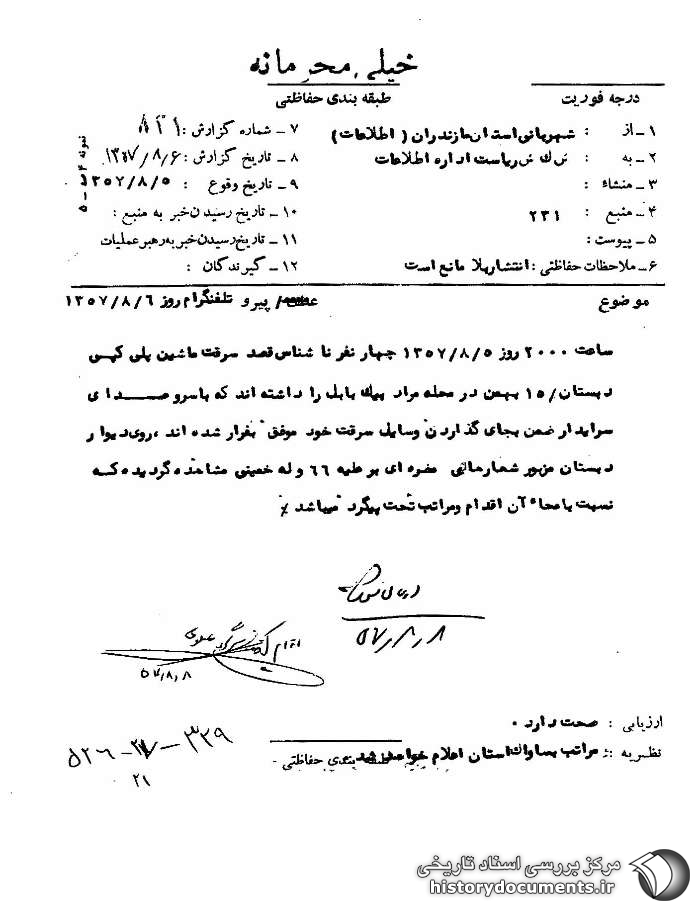 خیلی محرمانه
درجه فوریت
طبقه بندی حفاظتی
۱ـ از : شهربانی استان مازندران ( اطلاعات )
۷ ـ شماره گزارش : ۸۲۱
۲ـ به : ش ك ش ریاست اداره اطلاعات
۸ ـ تاریخ گزارش : ۱۳۵۷/۸/۶
۳ـ منشاء :
۹ ـ تاریخ وقوع : ۱۳۵۷/۸/۵
۴ـ منبع : ۲۳۱
۱۰ ـ تاریخ رسیدن خبر به منبع :
۵ ـ پیوست :
۱۱ ـ تاریخ رسیدن خبر به رهبر عملیات
۶ـ ملاحظات حفاظتی : انتشار بلا مانع است
۱۲ ـ گیرندگان :
نمونه
موضوع
عطف/ پیرو تلفنگرام روز ۱۳۵۷/۸/۶
ساعت ۲۰۰۰ روز ۱۳۵۷/۸/۵ چهار نفر نا شناس قصد سرقت ماشین پلی کپی
دبستان/۱۵ بهمن در محله مراد بیك بابل را داشته اند که باسرو صــدا ی
سرایدار ضمن بجای گذاردن وسایل سرقت خود موفق بفرار شده اند ، روی دیوار
دبستان مزبور شعارهائی مضره ای بر علیه ۶۶ و له خمینی مشاهده گردیده که
نسبت بامحاء آن اقدام ومراتب تحت پیگرد میباشد ٪
۵۷/۸/۸
اقدام
۵۷/۸/۸
ارزیابی : صحت دارد .
نظریه : مراتب بساواك استان اعلام خواهد شد .
طبقه بندی حفاظتی
۳۲۹ -
- ۵۲۶
۲۱
مرکز بررسی اسناد تاریخی
historydocuments.ir